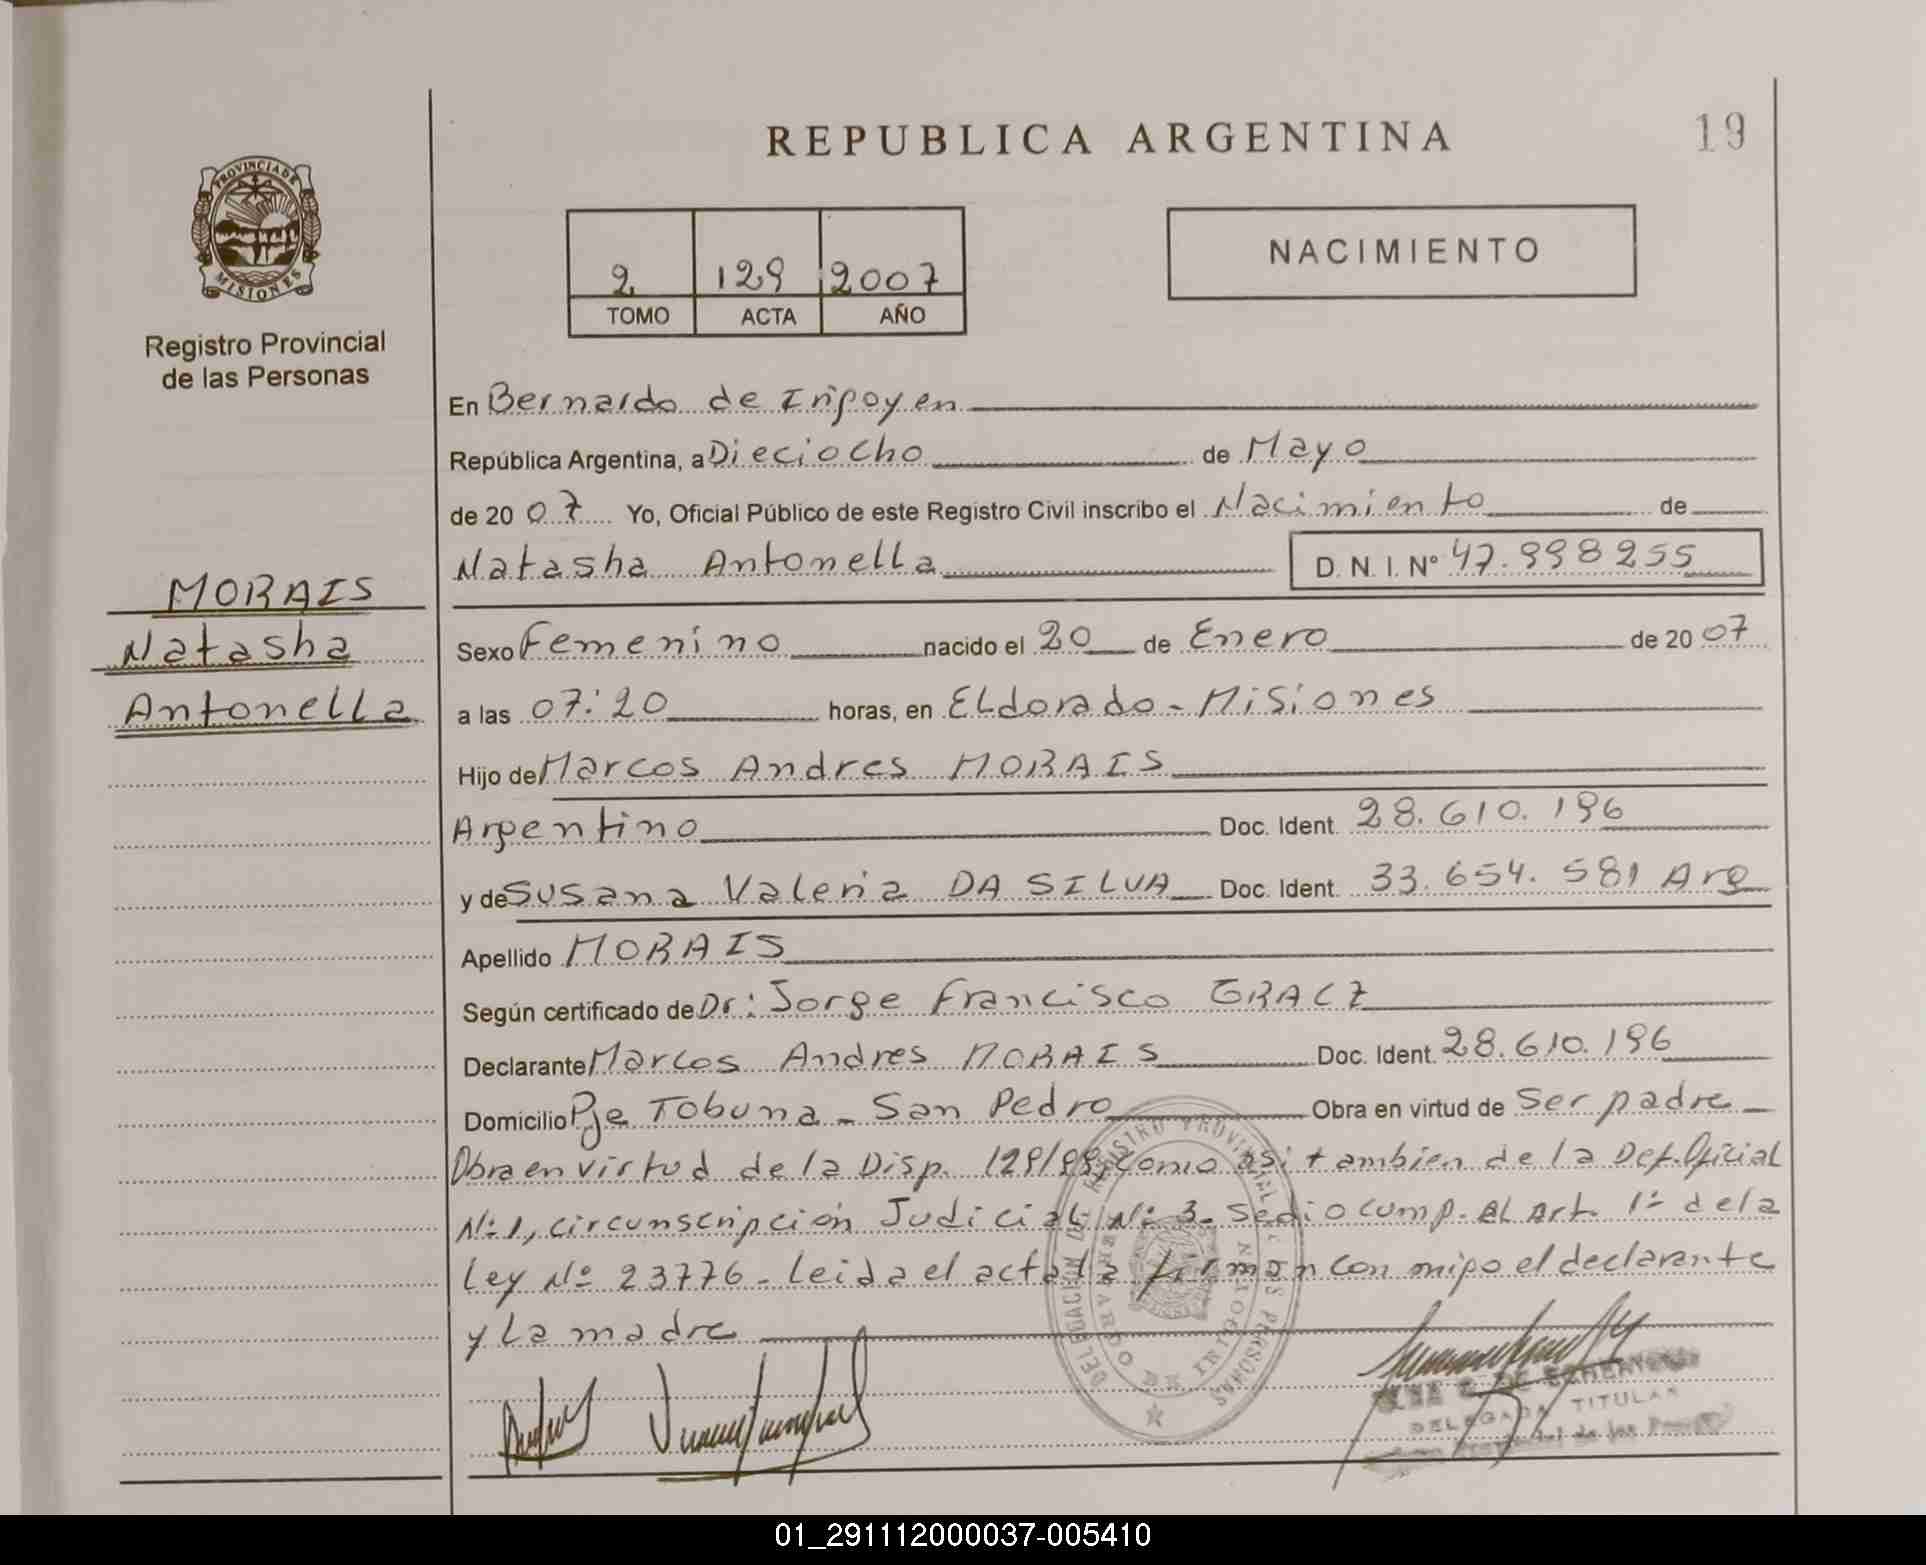 REPUBLICA ARGENTINA
19
PROVINCIA DE MISIONES
Registro Provincial
de las Personas
2 129 2007
TOMO ACTA AÑO
NACIMIENTO
En Bernardo de Irigoyen
República Argentina, a Dieciocho de Mayo
de 20 07 Yo, Oficial Público de este Registro Civil inscribo el Nacimiento de
Natasha Antonella D. N. I. Nº 47.998255
MORAIS
Natasha
Antonella
Sexo Femenino nacido el 20 de Enero de 20 07
a las 07:20 horas, en ELdorado - Misiones
Hijo de Marcos Andres MORAIS
Argentino Doc. Ident. 28.610.196
y de Susana Valeria DA SILVA Doc. Ident. 33.654.581 Arg
Apellido MORAIS
Según certificado de Dr: Jorge Francisco GRACZ
Declarante Marcos Andres MORAIS Doc. Ident. 28.610.196
Domicilio Pje Tobuna - San Pedro Obra en virtud de Ser padre
Obra en virtud de la Disp. 129/99, como asi tambien de la Def. Oficial
Nº 1, circunscripción Judicial Nº 3- Se dio cump. al Art. 1º de la
Ley Nº 23776 - Leida el acta la firman con migo el declarante
y La madre
DELEGACION DE REGISTRO PROVINCIAL DE LAS PERSONAS
BERNARDO DE IRIGOYEN
DELEGADA TITULAR
de las
01_291112000037-005410